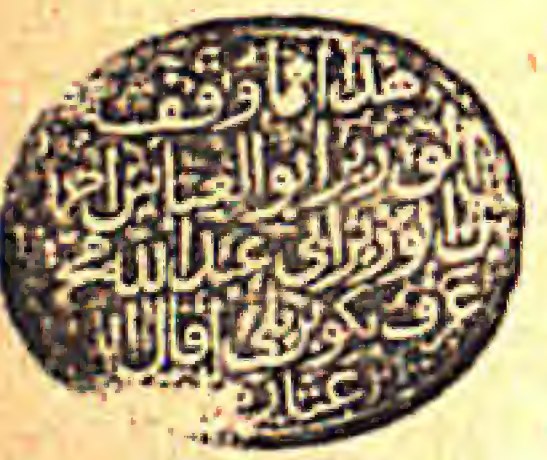 هذا ما وقف
الوزير ابو العباس احمد
بن الوزير ابي عبد الله محمد
عرف بكوبريلي اقال الله